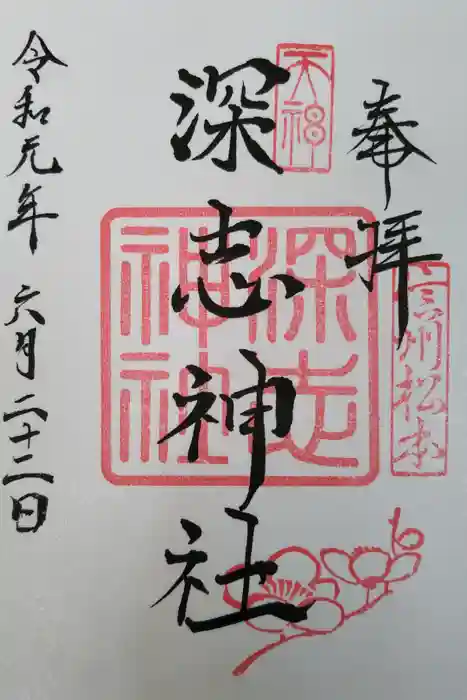 奉拝
信州松本
天神
深志神社
深志神社
令和元年 六月二十二日